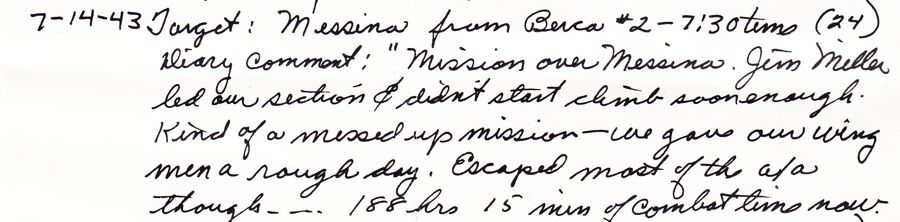 7-14-43 Target: Messina from Berca #2 - 7:30 time (24)
Diary comment: "Mission over Messina. Jim Miller
led our section & didn't start climb soon enough.
Kind of a messed up mission - we gave our wing
men a rough day. Escaped most of the a/a
though - -. 188 hrs 15 min of combat time now-